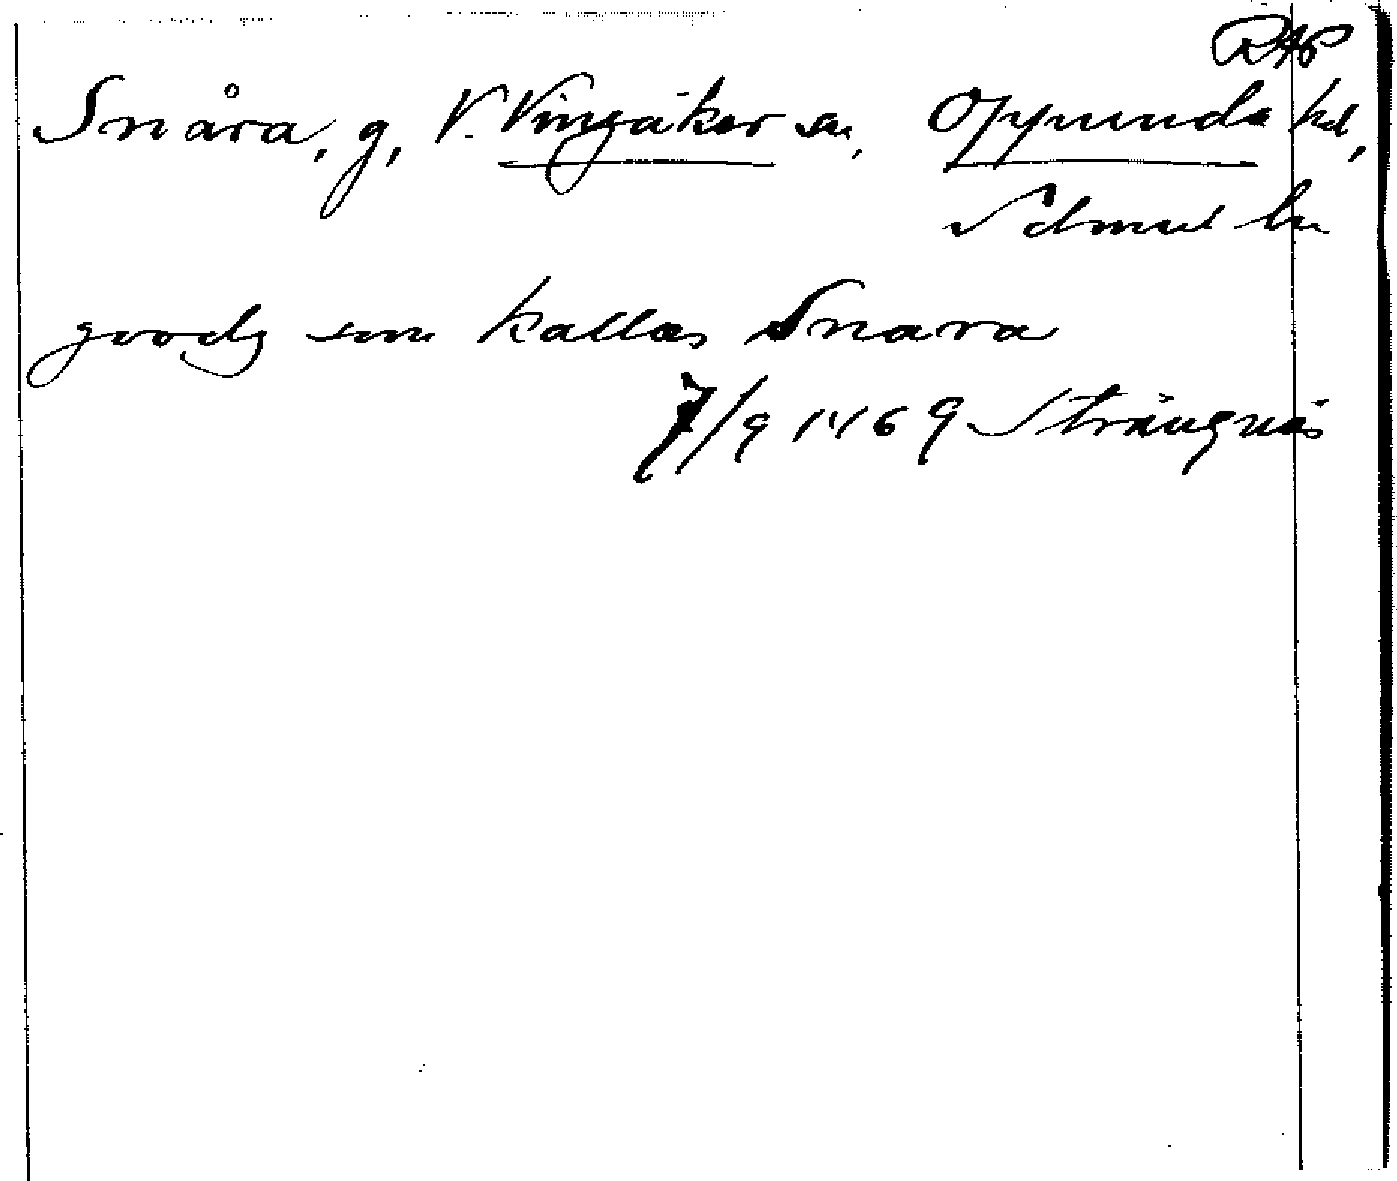 RAP
Snåra, g, V. Vingåker sn, Oppunda hd,
Sdmnl ln
goodz som kallas Snara
7/9 1469 Strängnäs